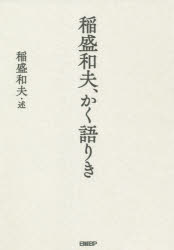 稲盛和夫、かく語りき
稲盛和夫・述
日経BP